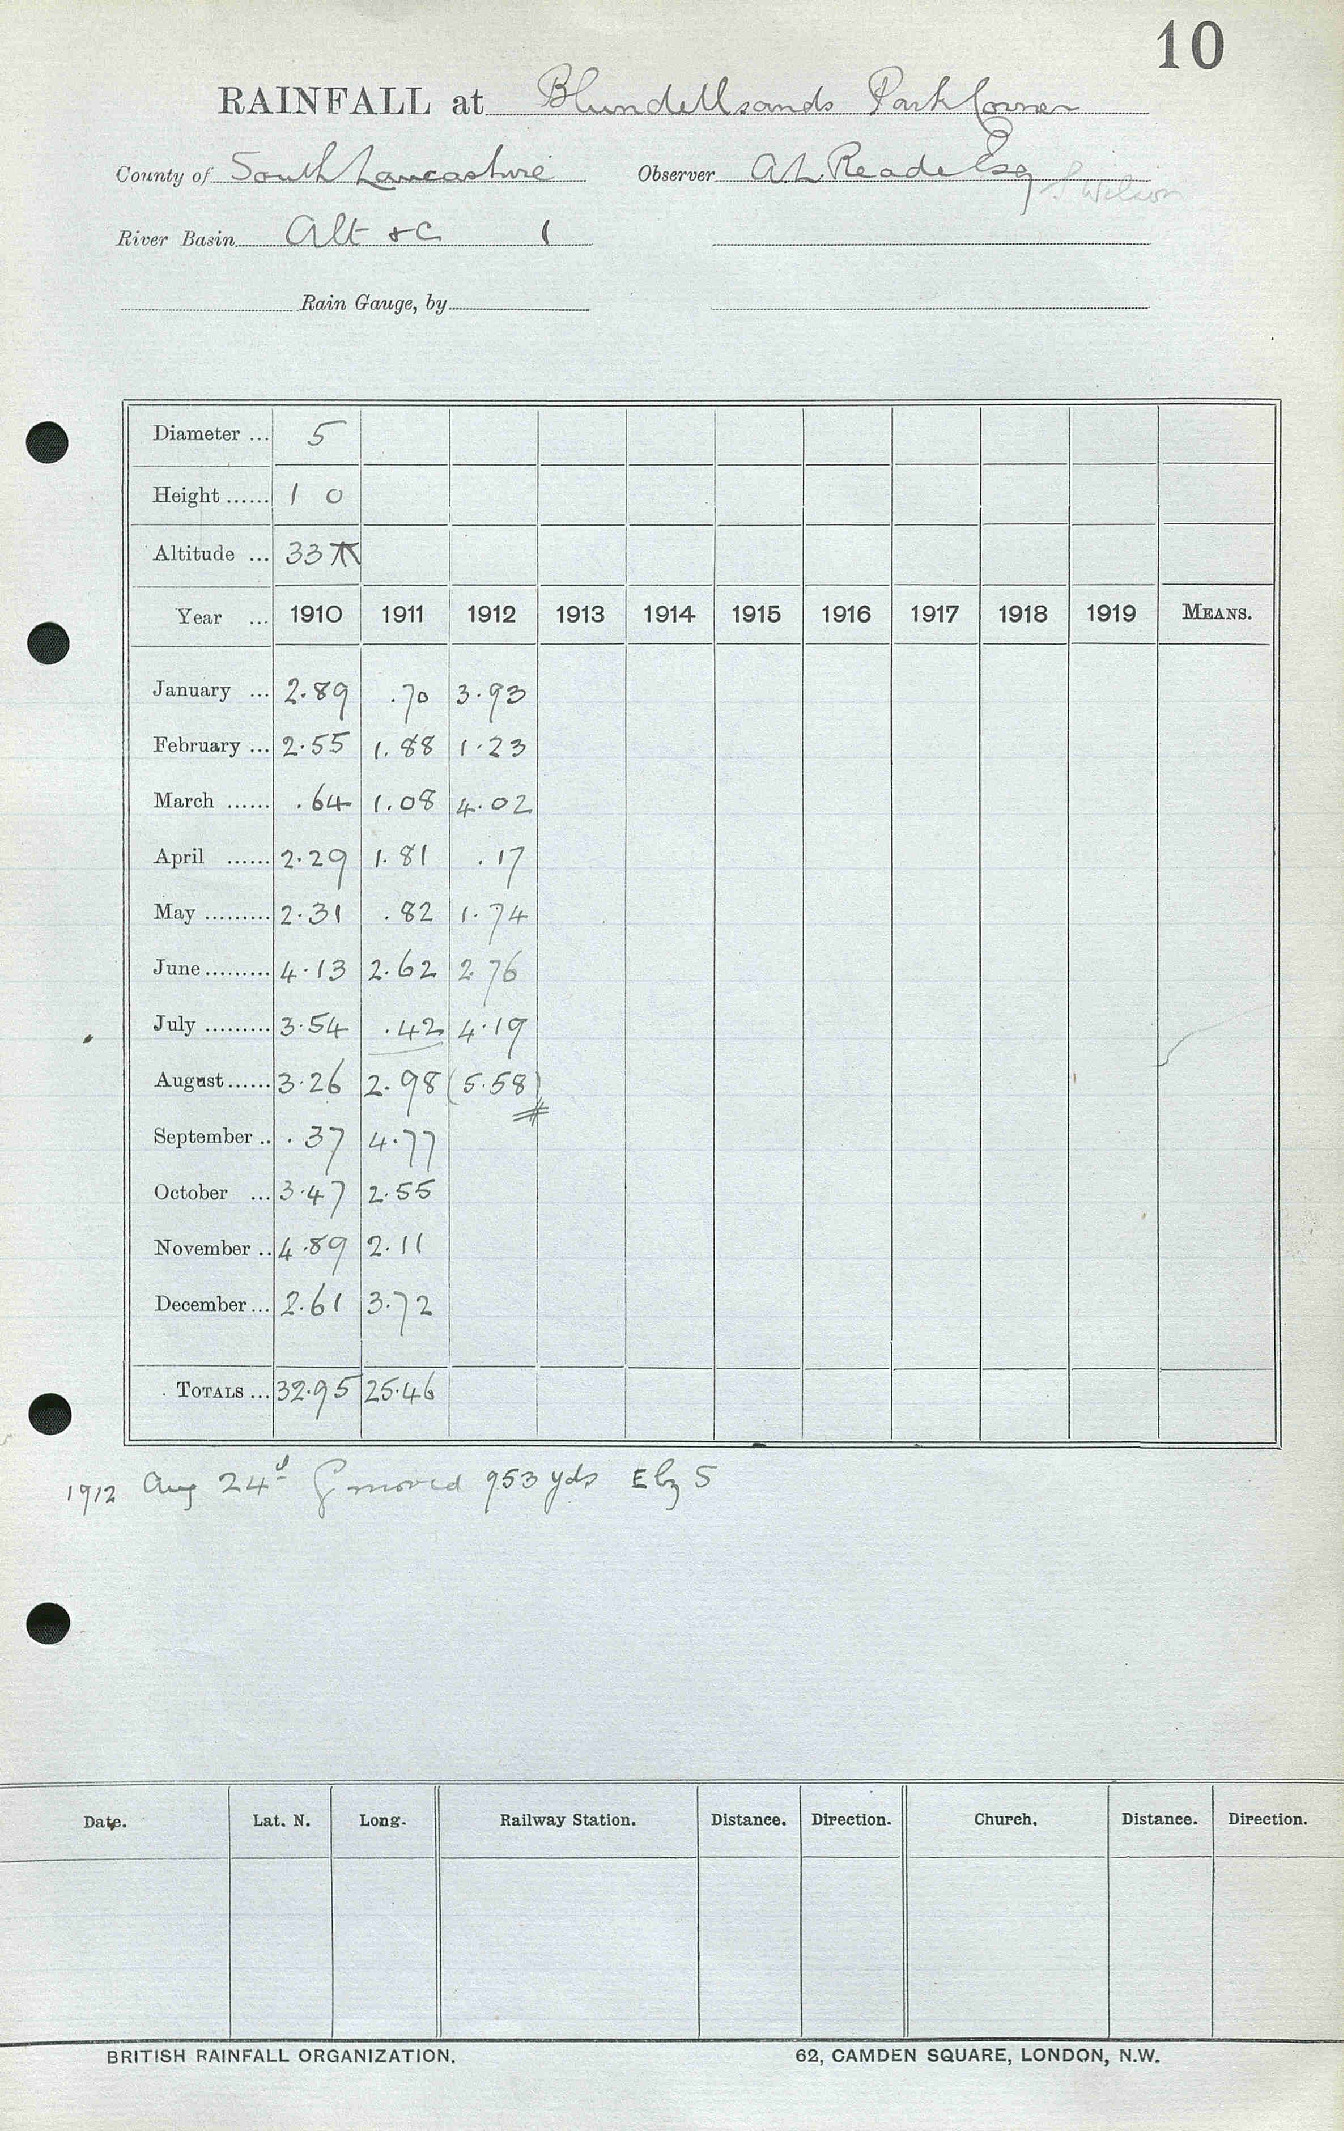 10
RAINFALL at Blundellsands Park Corner
County of South Lancashire Observer A L Reade Esq S Wilson
River Basin Alt &c 1
Rain Gauge, by
Diameter ... 5
Height ...... 1 0
Altitude ... 33
Year ... 1910 1911 1912 1913 1914 1915 1916 1917 1918 1919 MEANS.
January ... 2.89 .70 3.93
February ... 2.55 1.88 1.23
March ...... .64 1.08 4.02
April ...... 2.29 1.81 .17
May ......... 2.31 .82 1.74
June ......... 4.13 2.62 2.76
July ......... 3.54 .42 4.19
August ...... 3.26 2.98 (5.58)
#
September .. .37 4.77
October ... 3.47 2.55
November .. 4.89 2.11
December ... 2.61 3.72
TOTALS ... 32.95 25.46
1912 Aug 24th G moved 953 yds E by S
Date. Lat. N. Long. Railway Station. Distance. Direction. Church. Distance. Direction.
BRITISH RAINFALL ORGANIZATION. 62, CAMDEN SQUARE, LONDON, N.W.